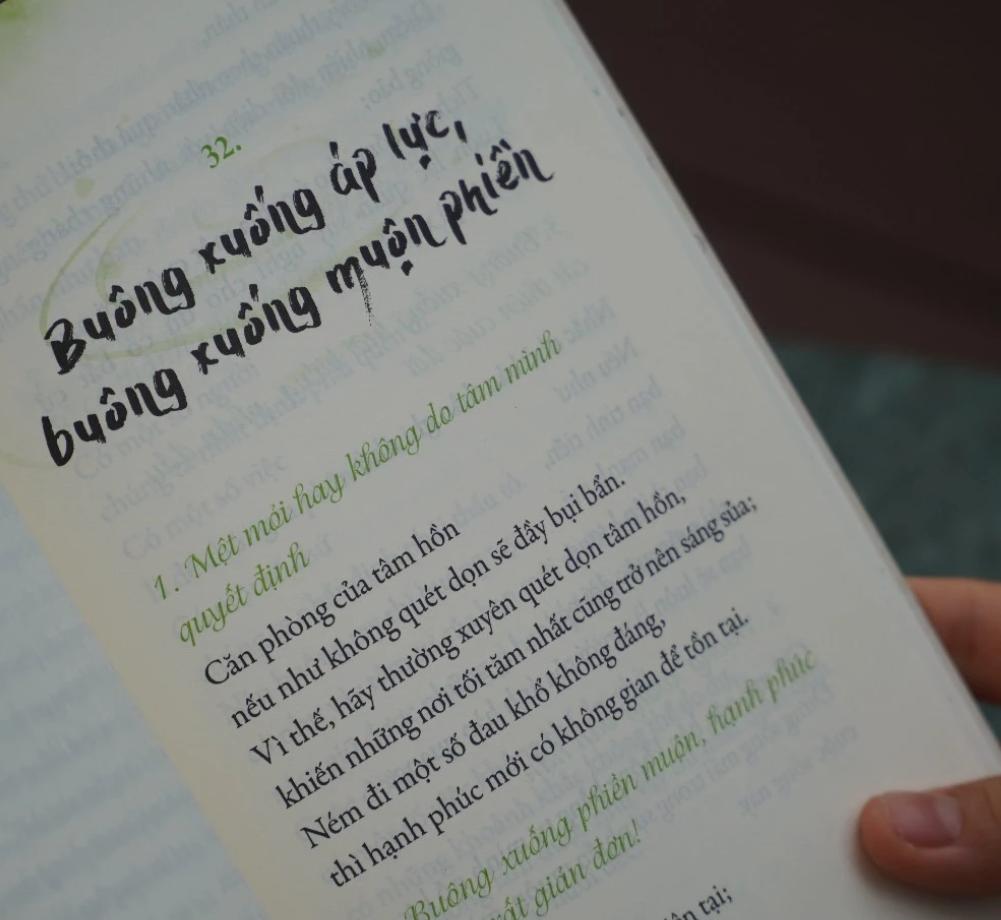 32.
Buông xuống áp lực,
buông xuống muộn phiền
1. Mệt mỏi hay không do tâm mình
quyết định
Căn phòng của tâm hồn
nếu như không quét dọn sẽ đầy bụi bẩn.
Vì thế, hãy thường xuyên quét dọn tâm hồn,
khiến những nơi tối tăm nhất cũng trở nên sáng sủa;
Ném đi một số đau khổ không đáng,
thì hạnh phúc mới có không gian để tồn tại.
Buông xuống phiền muộn, hạnh phúc
rất giản đơn!
tại;